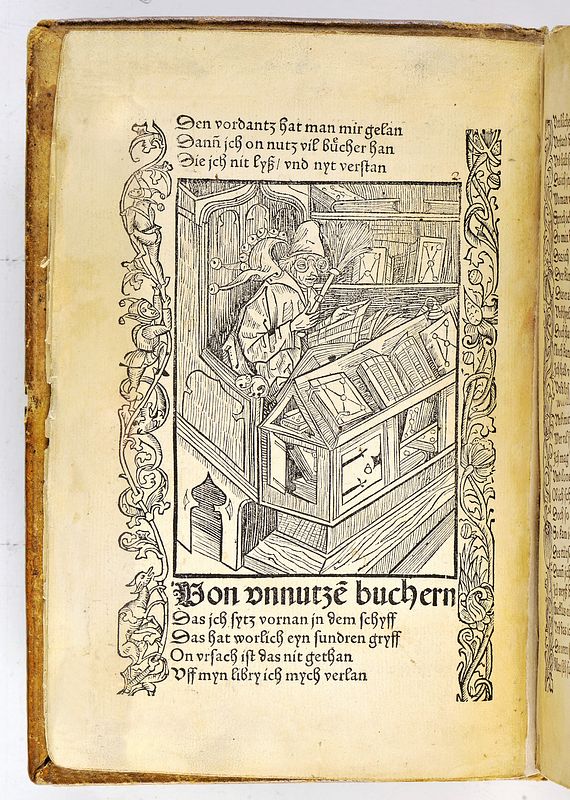 Den vordantz hat man mir gelan
Dann̄ jch on nutz vil bůcher han
Die jch nit lyß / vnd nyt verstan
2
Von vnnutzē buchern
Das jch sytz vornan jn dem schyff
Das hat worlich eyn sundren gryff
On vrsach ist das nit gethan
Vff myn libry ich mych verlan